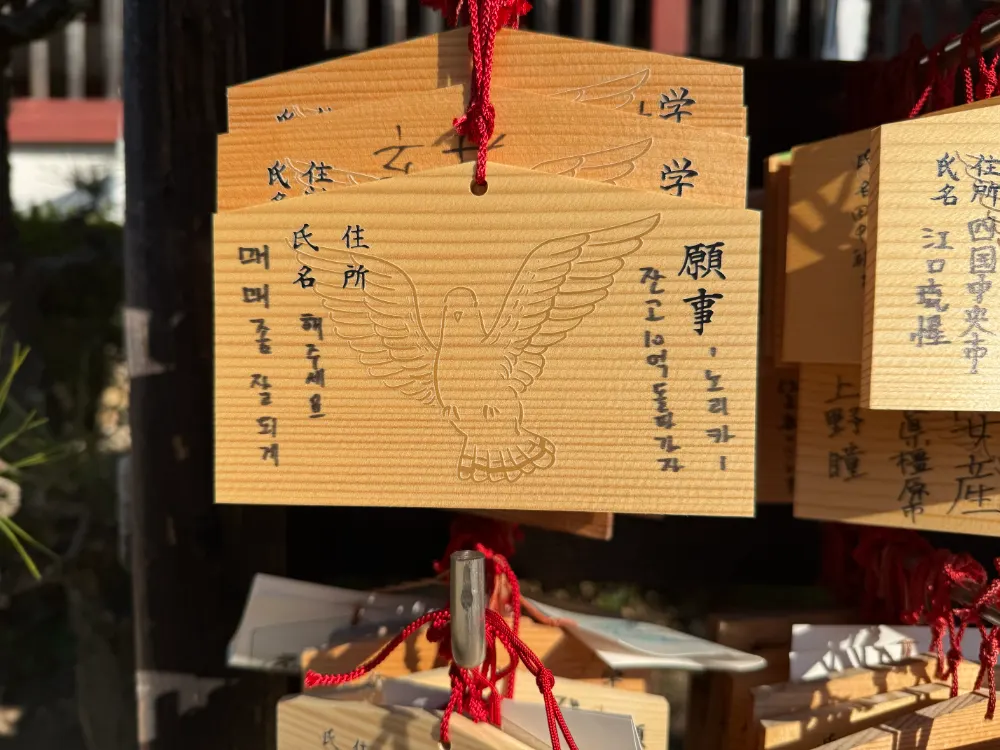 願事 '노리카'
잔고 10억 돌파 가자
住所
氏名 해주세요
매매 좀 잘 되게
学
学
住
氏名
住所 四国中央市
氏名 江口
上野瞳
県橿原
氏
住